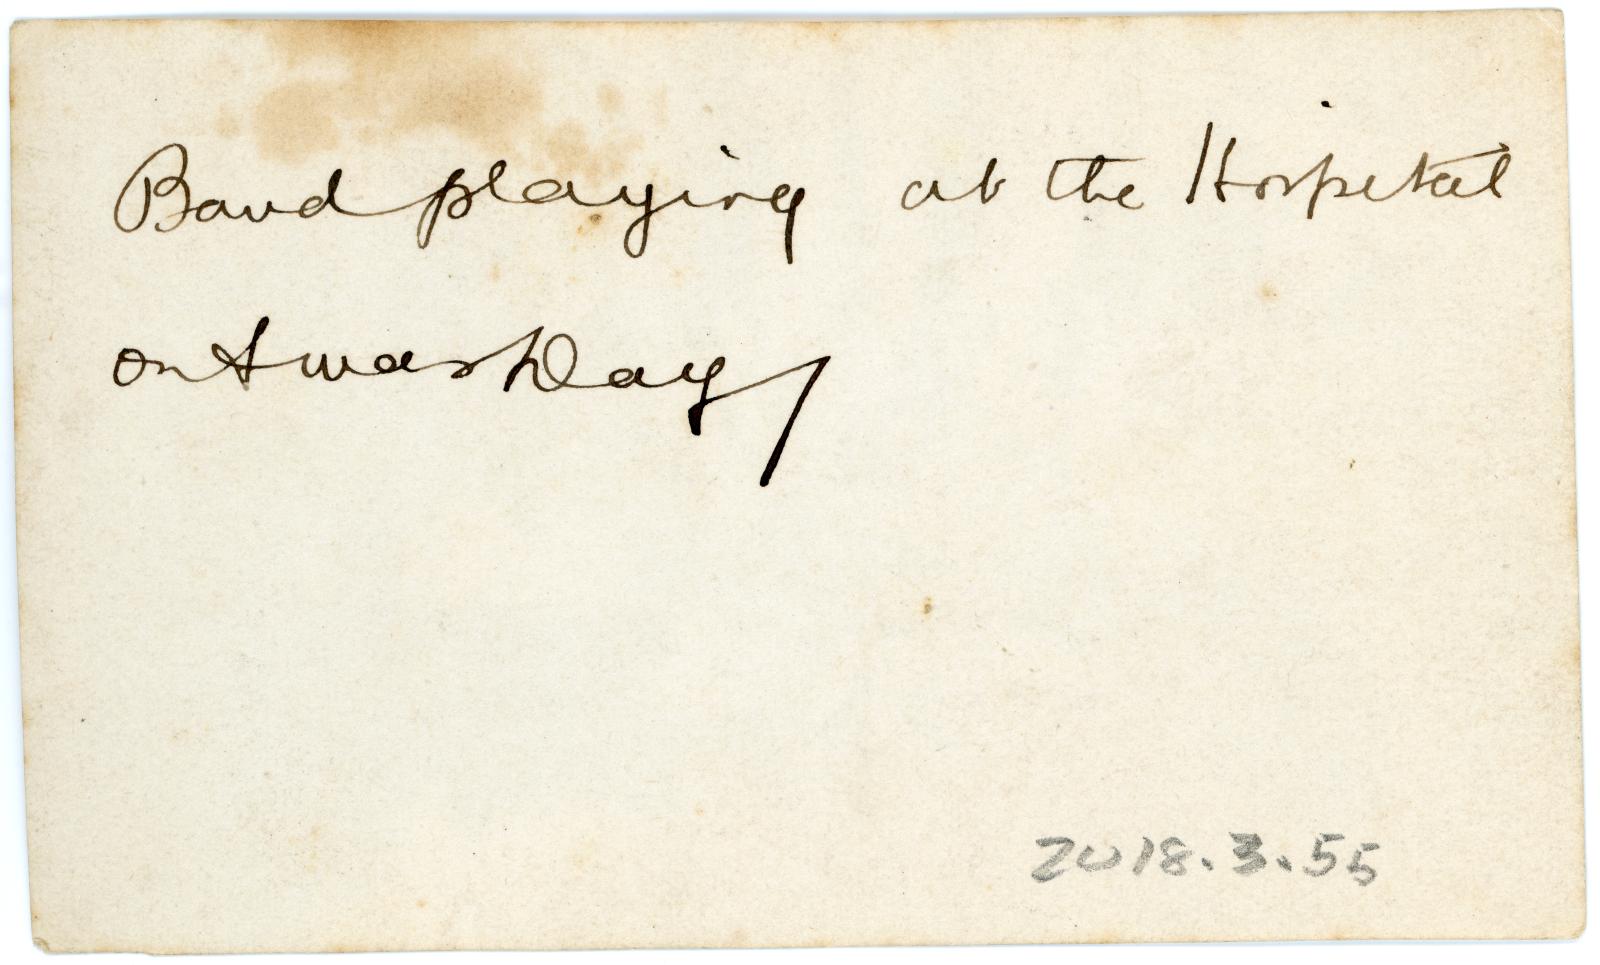 Band playing at the Hospital
on Xmas Day
2018.3.55